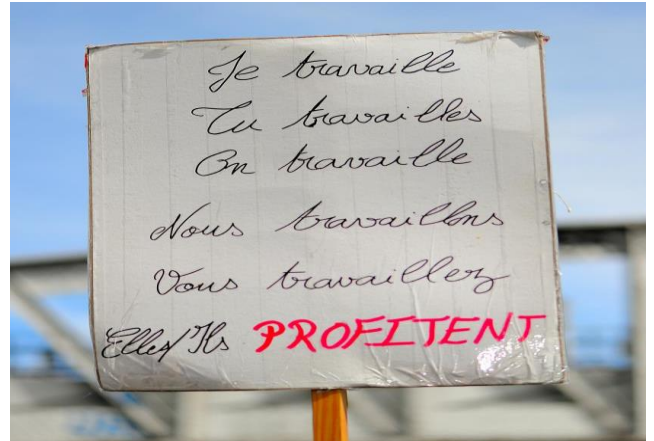 Je travaille
Tu travailles
On travaille
Nous travaillons
Vous travaillez
Elles/Ils PROFITENT